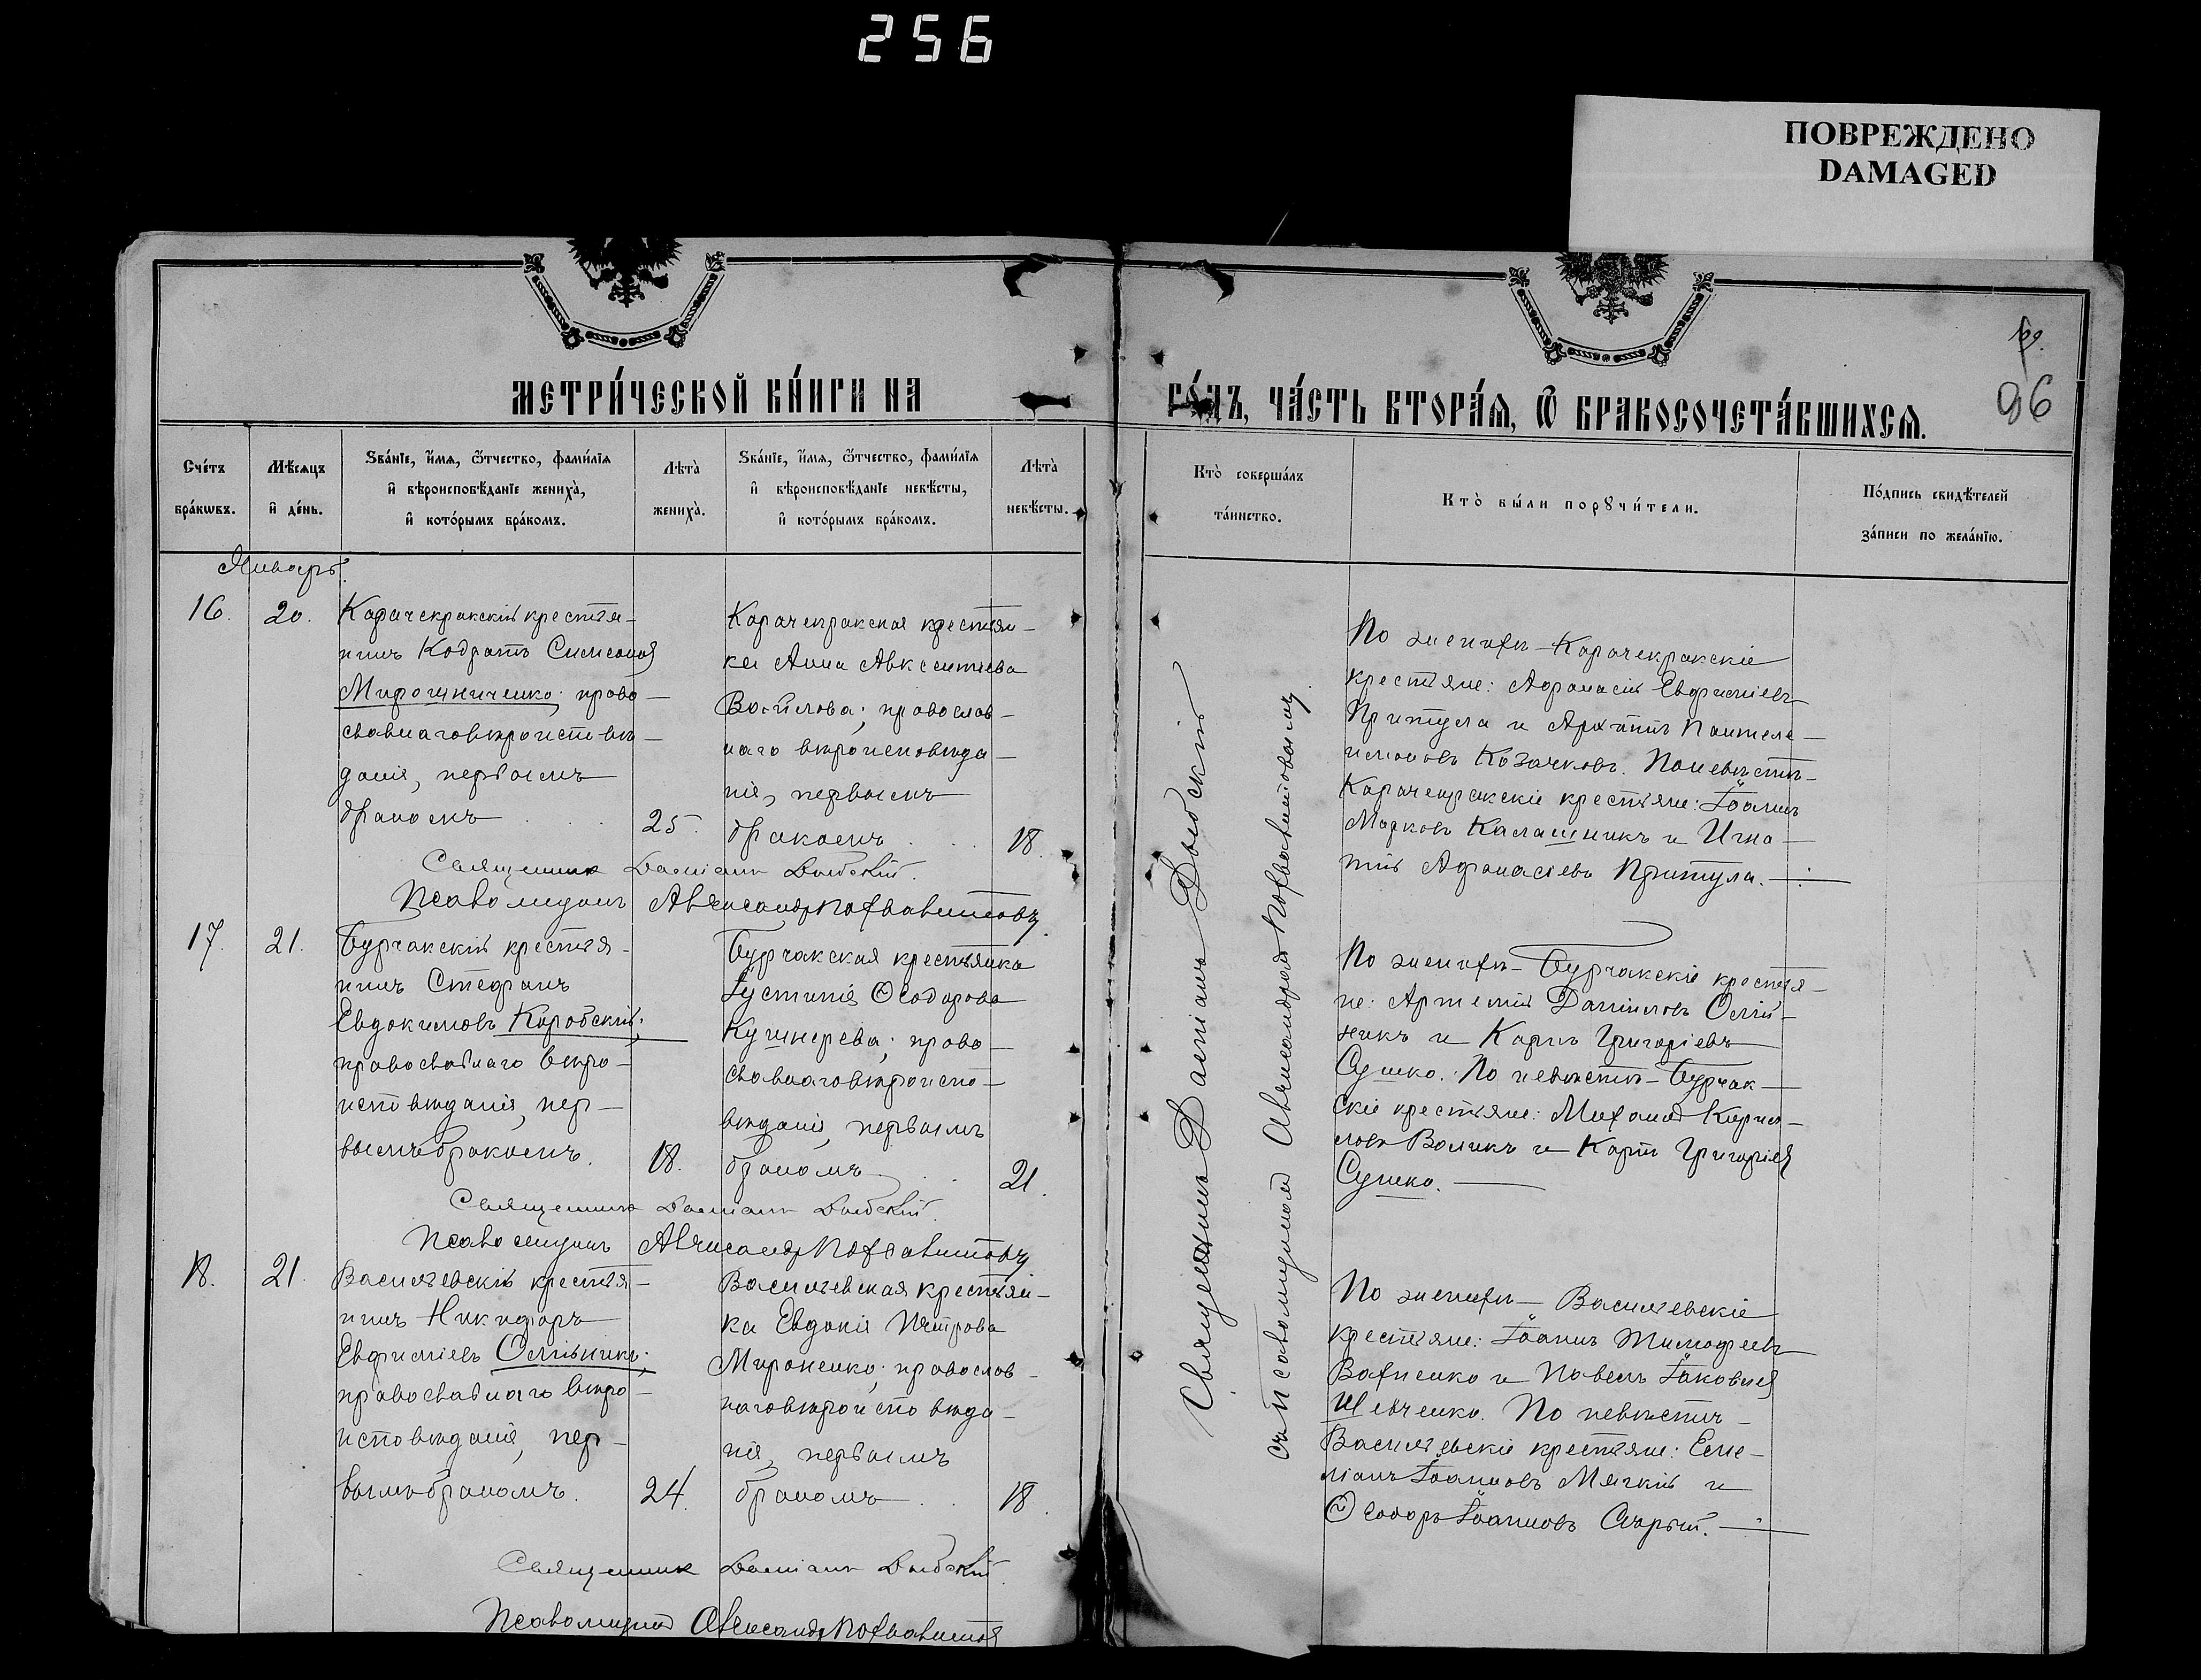 256
ПОВРЕЖДЕНО
DAMAGED
96
МЕТРИ́ЧЕСКОЙ КНИ́ГИ НА
ГО́ДЪ, ЧА́СТЬ ВТОРА́Я, Ѿ БРАКОСОЧЕТА́ВШИХСЯ.
Сче́тъ
бра́кѡвъ.
Мѣ́сяцъ
и҆ де́нь.
Ѕва́нїе, и҆́мя, ѻ҆́тчество, фами́лїя
и҆ вѣроисповѣ́данїе жениха̀,
и҆ кото́рымъ бра́комъ.
Лѣта̀
жениха̀.
Ѕва́нїе, и҆́мя, ѻ҆́тчество, фами́лїя
и҆ вѣроисповѣ́данїе невѣ́сты,
и҆ кото́рымъ бра́комъ.
Лѣта̀
невѣ́сты.
Кто̀ соверша́лъ
та́инство.
Кто̀ бы́ли порꙋчи́тели.
По́дпись свидѣ́телей
за́писи по жела́нїю.
Январь.
16.
20.
Карачекракскій крестья-
нинъ Кодратъ Симеоновъ
Мирошниченко; право-
славнаго вѣроисповѣ-
данія, первымъ
бракомъ
25.
Карачекракская крестьян-
ка Анна Авксентіева
Войлова; православ-
наго вѣроисповѣда-
нія, первымъ
бракомъ
18.
Священникъ Даміанъ Дыбскій.
Псаломщикъ Александръ Похвалитовъ.
По женихѣ – Карачекракскіе
крестьяне: Афанасій Евфиміевъ
Притула и Архипъ Пантеле-
имоновъ Козачковъ. По невѣстѣ-
Карачекракскіе крестьяне: Іоаннъ
Марковъ Калашникъ и Игна-
тій Афанасіевъ Притула.
17.
21.
Бурчакскій крестья-
нинъ Стефанъ
Евдокимовъ Коробскій;
православнаго вѣро-
исповѣданія, пер-
вымъ бракомъ.
18.
Бурчакская крестьянка
Іустинія Ѳеодорова
Кушнерева; право-
славнаго вѣроиспо-
вѣданія, первымъ
бракомъ
21.
Священникъ Даміанъ Дыбскій.
Псаломщикъ Александръ Похвалитовъ
По женихѣ – Бурчакскіе крестья-
не: Артемій Даніиловъ Олій-
никъ и Карпъ Григоріевъ
Сушко. По невѣстѣ – Бурчак-
скіе крестьяне: Михаилъ Кирил-
ловъ Воликъ и Карпъ Григоріевъ
Сушко.
18.
21.
Васильевскій крестья-
нинъ Никифоръ
Евфиміевъ Олійникъ;
православнаго вѣро-
исповѣданія, пер-
вымъ бракомъ.
24.
Васильевская крестьян-
ка Евдокія Петрова
Мироненко; православ-
наго вѣроисповѣда-
нія, первымъ
бракомъ
18.
Священникъ Даміанъ Дыбскій.
Псаломщикъ Александръ Похвалитовъ
По женихѣ – Васильевскіе
крестьяне: Іоаннъ Тимофеевъ
Вахненко и Павелъ Іаковлевъ
Шевченко. По невѣстѣ –
Васильевскіе крестьяне: Еме-
ліанъ Іоанновъ Мягкій и
Ѳеодоръ Іоанновъ Сѣрый.
Священникъ Даміанъ Дыбскій
съ псаломщикомъ Александромъ Похвалитовымъ.